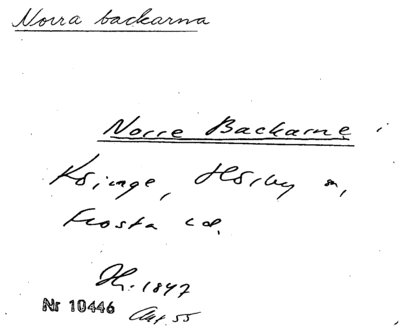 Norra backarna
Norre Backarne i
Köinge, Hörby sn,
Frosta hd.
1847
Nr 10446